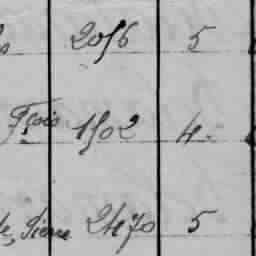 2056 5
Fçois 1502 4.
Pierre 2470 5